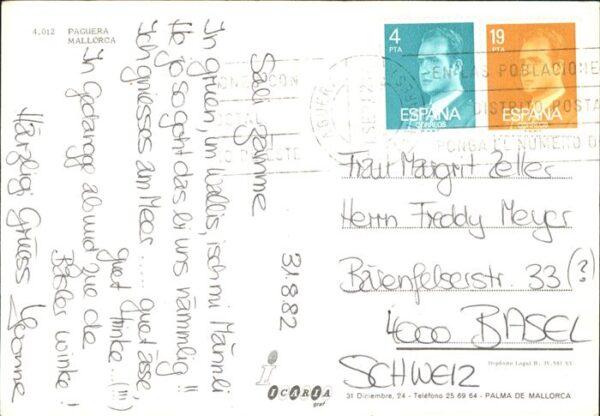 4.012 PAGUERA
MALLORCA
31.8.82
Sali Zamme
In grien, im Wallis, isch mi Männli
He jo so goht das bi uns nämmlig!!
Ich gniesses am Meer.... guet ässe,
guet trinke...(!!!)
In Gedangge ab und zue de
Basler winke!
Härzligi Grüess Yvonne
4
PTA
ESPAÑA
CORREOS
19
PTA
ESPAÑA
CORREOS
EN LAS POBLACIONE
DISTRITO POSTA
PONGA EL NUMERO D
Frau Margrit Zeller
Herrn Freddy Meyer
Bärenfelserstr. 33 (?)
4000 BASEL
SCHWEIZ
ICARIA
graf
31 Diciembre, 24 - Teléfono 25 69 64 - PALMA DE MALLORCA